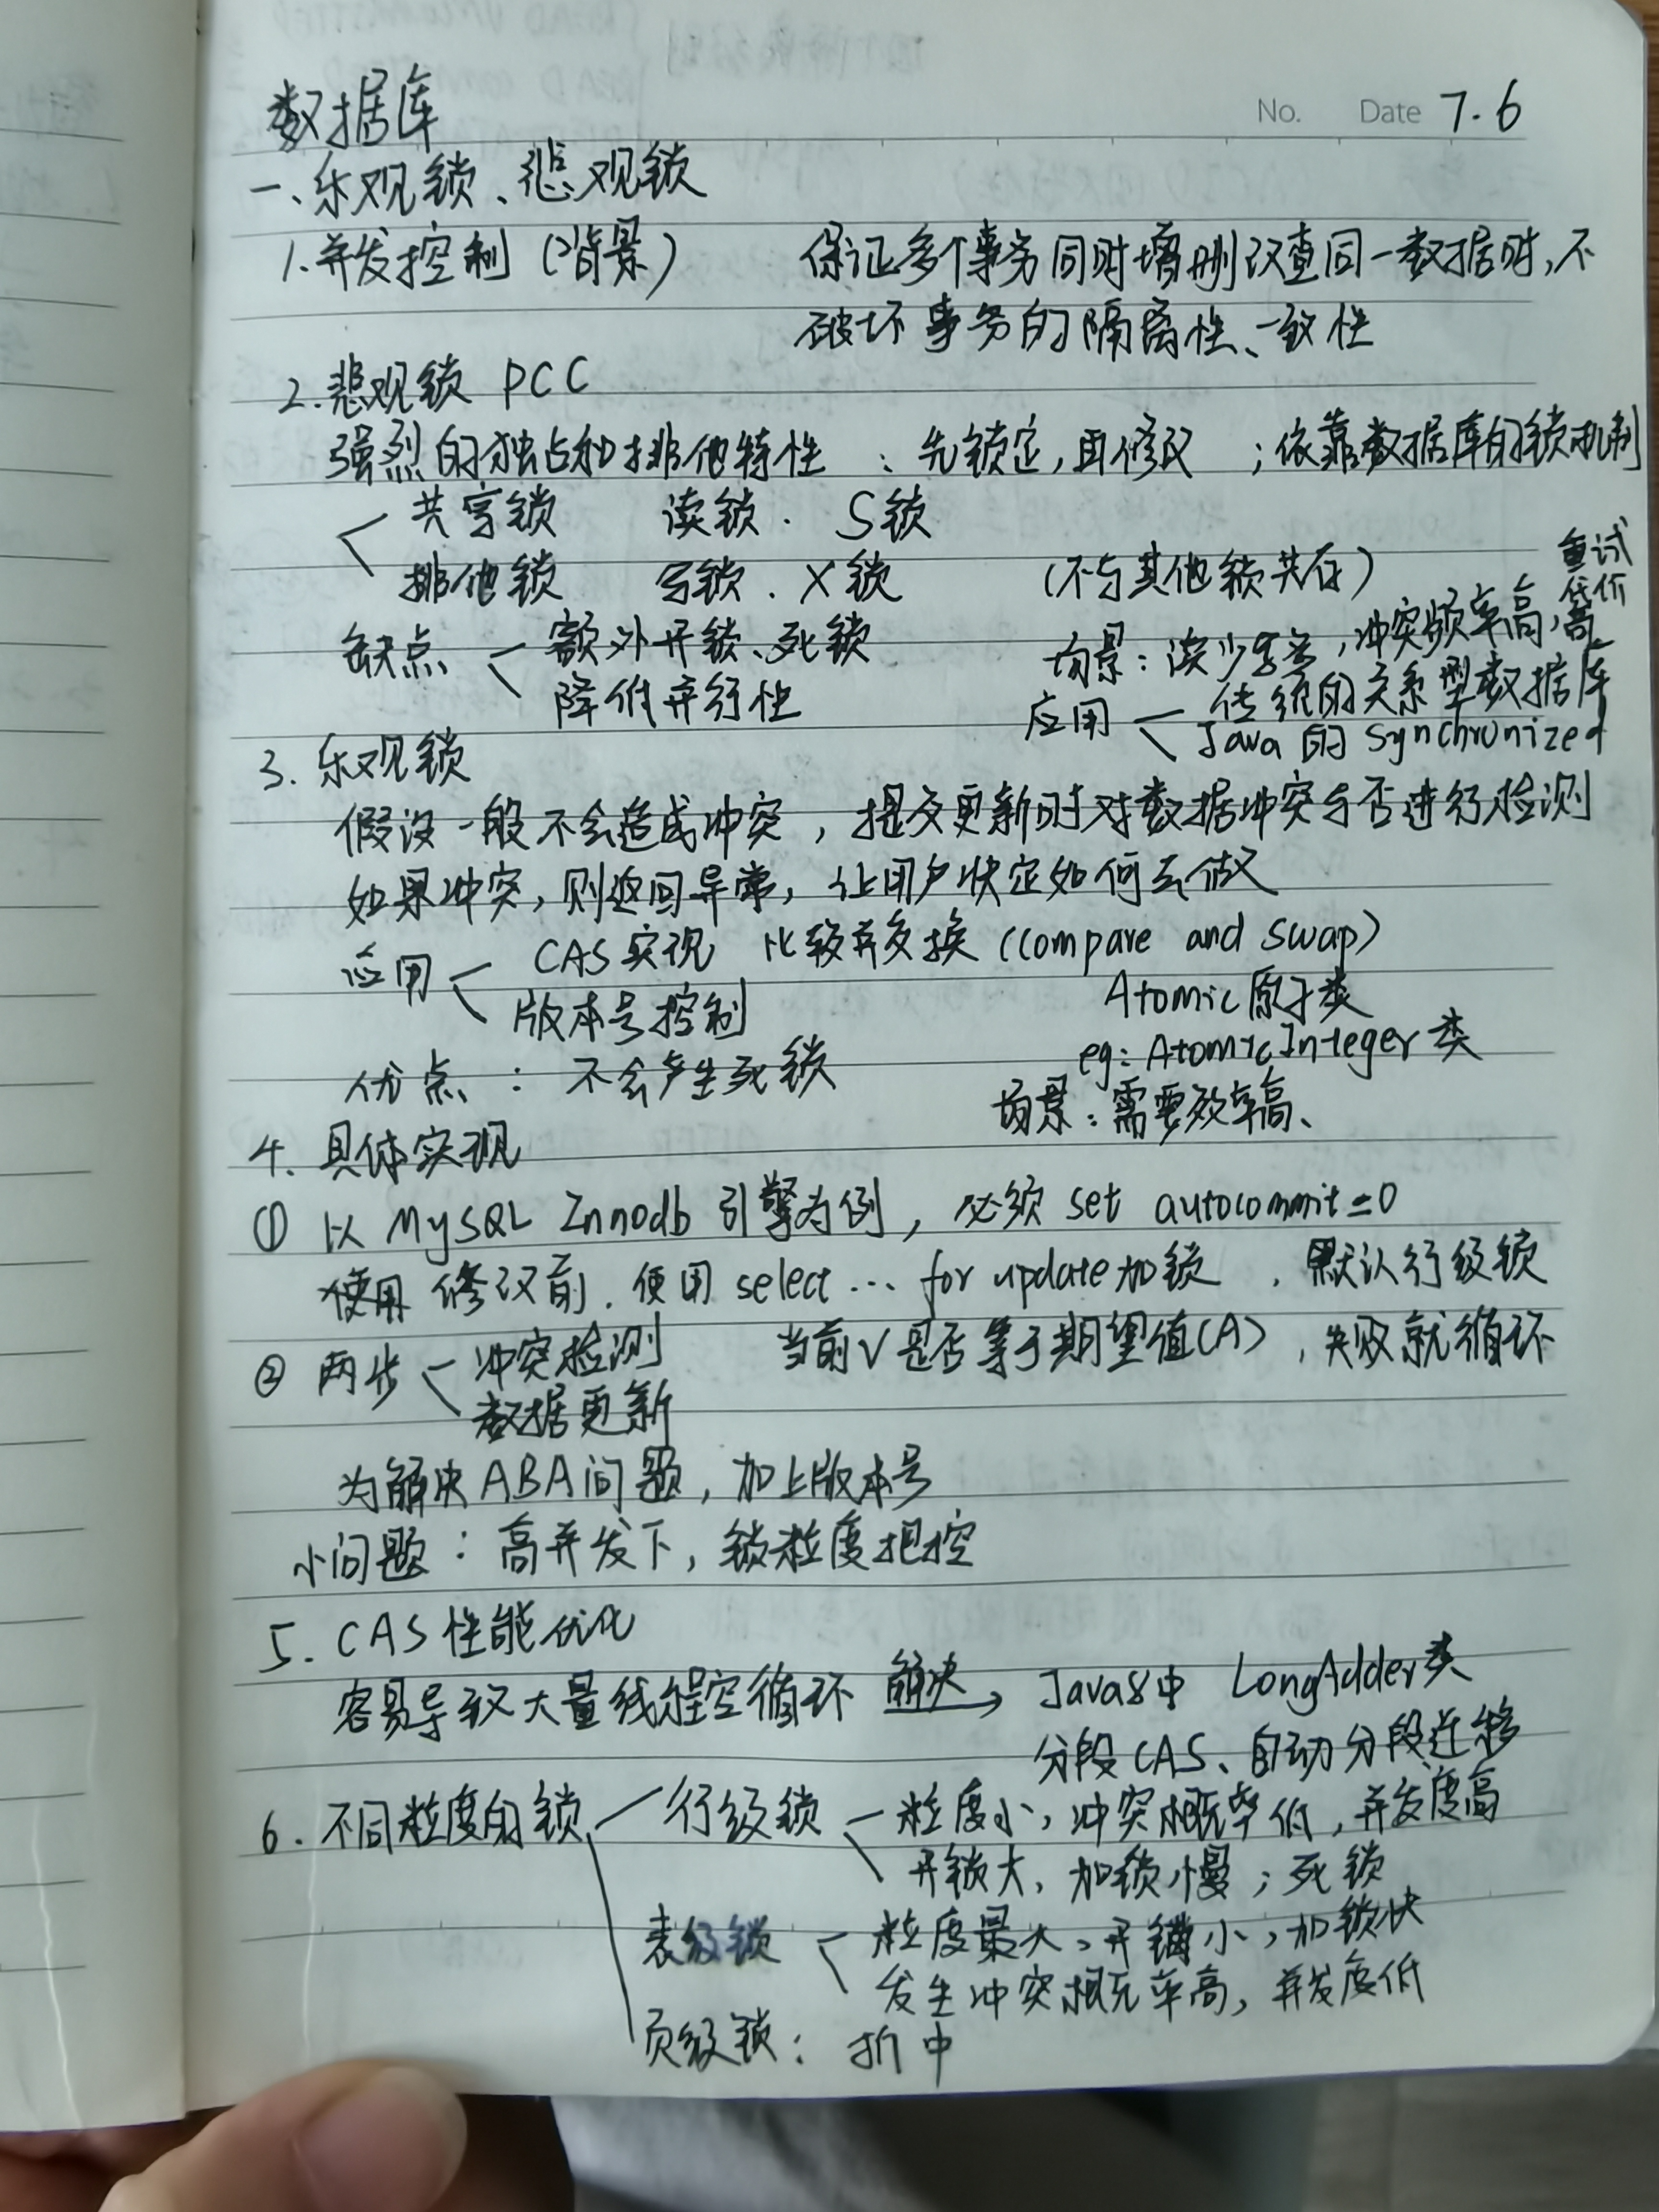 数据库
No. Date 7.6
一、乐观锁、悲观锁
1.并发控制（背景） 保证多个事务同时增删改查同一数据时,不
破坏事务的隔离性、一致性
2.悲观锁 PCC
强烈的独占和排他特性 : 先锁定,再修改 ;依靠数据库的锁机制
共享锁 读锁. S锁
排他锁 写锁. X锁 (不与其他锁共存)
缺点 额外开锁、死锁
降低并行性
场景:读少写多,冲突频率高,重试代价高
应用 传统的关系型数据库
Java的Synchronized
3.乐观锁
假设一般不会造成冲突,提交更新时对数据冲突与否进行检测
如果冲突,则返回异常,让用户决定如何去做
应用 CAS实现 比较并交换 (compare and swap)
版本号控制 Atomic原子类
eg: AtomicInteger类
优点: 不会产生死锁
场景:需要效率高、
4.具体实现
① 以 MySQL Innodb 引擎为例, 必须 set autocommit=0
使用 修改前.使用 select ... for update加锁 ,默认行级锁
② 两步 冲突检测 当前V是否等于期望值(A),失败就循环
数据更新
为解决ABA问题,加上版本号
小问题:高并发下,锁粒度把控
5. CAS性能优化
容易导致大量线程空循环 解决→ Java8中 LongAdder类
分段CAS、自动分段迁移
6.不同粒度的锁 行级锁 粒度小,冲突概率低,并发度高
开锁大、加锁慢;死锁
表级锁 粒度最大,开销小,加锁快
发生冲突概率高,并发度低
页级锁: 折中